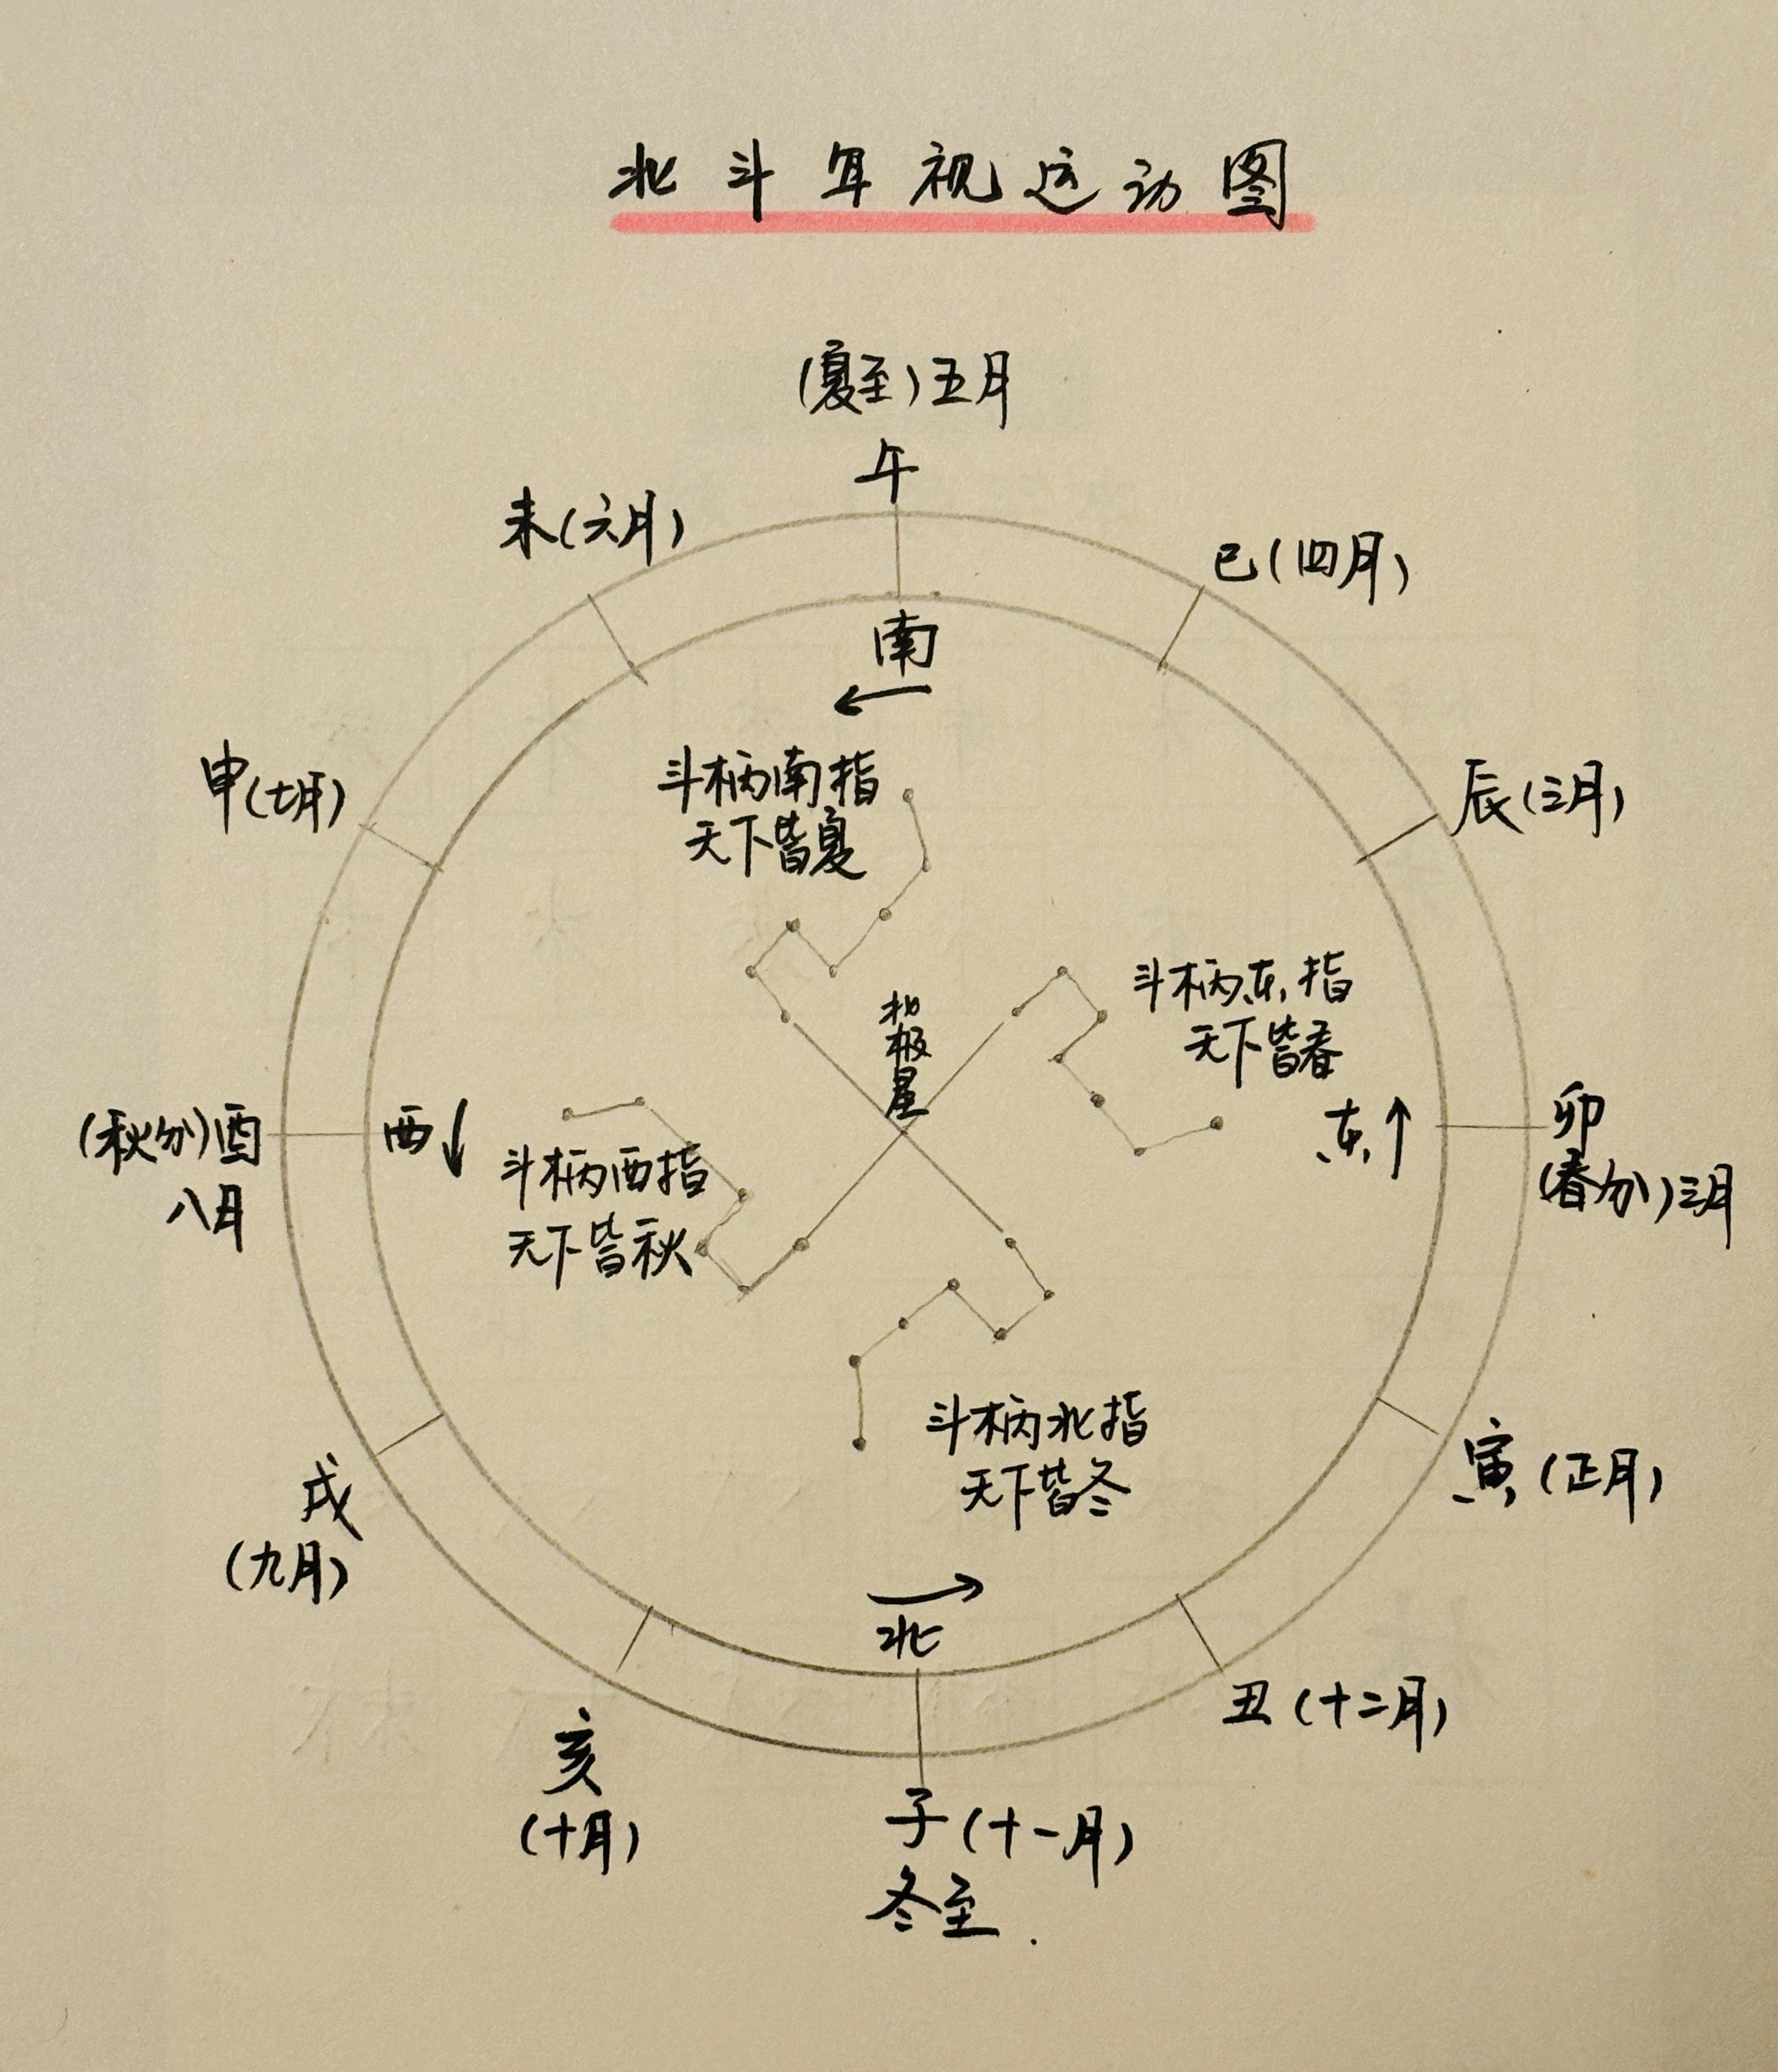 北斗年视运动图
(夏至)五月
午
未(六月)
巳(四月)
南
←
申(七月)
斗柄南指
天下皆夏
辰(三月)
北极星
斗柄东指
天下皆春
(秋分)酉
八月
西↓
斗柄西指
天下皆秋
东↑
卯
(春分)三月
斗柄北指
天下皆冬
戌
(九月)
寅(正月)
→
北
亥
(十月)
丑(十二月)
子(十一月)
冬至.